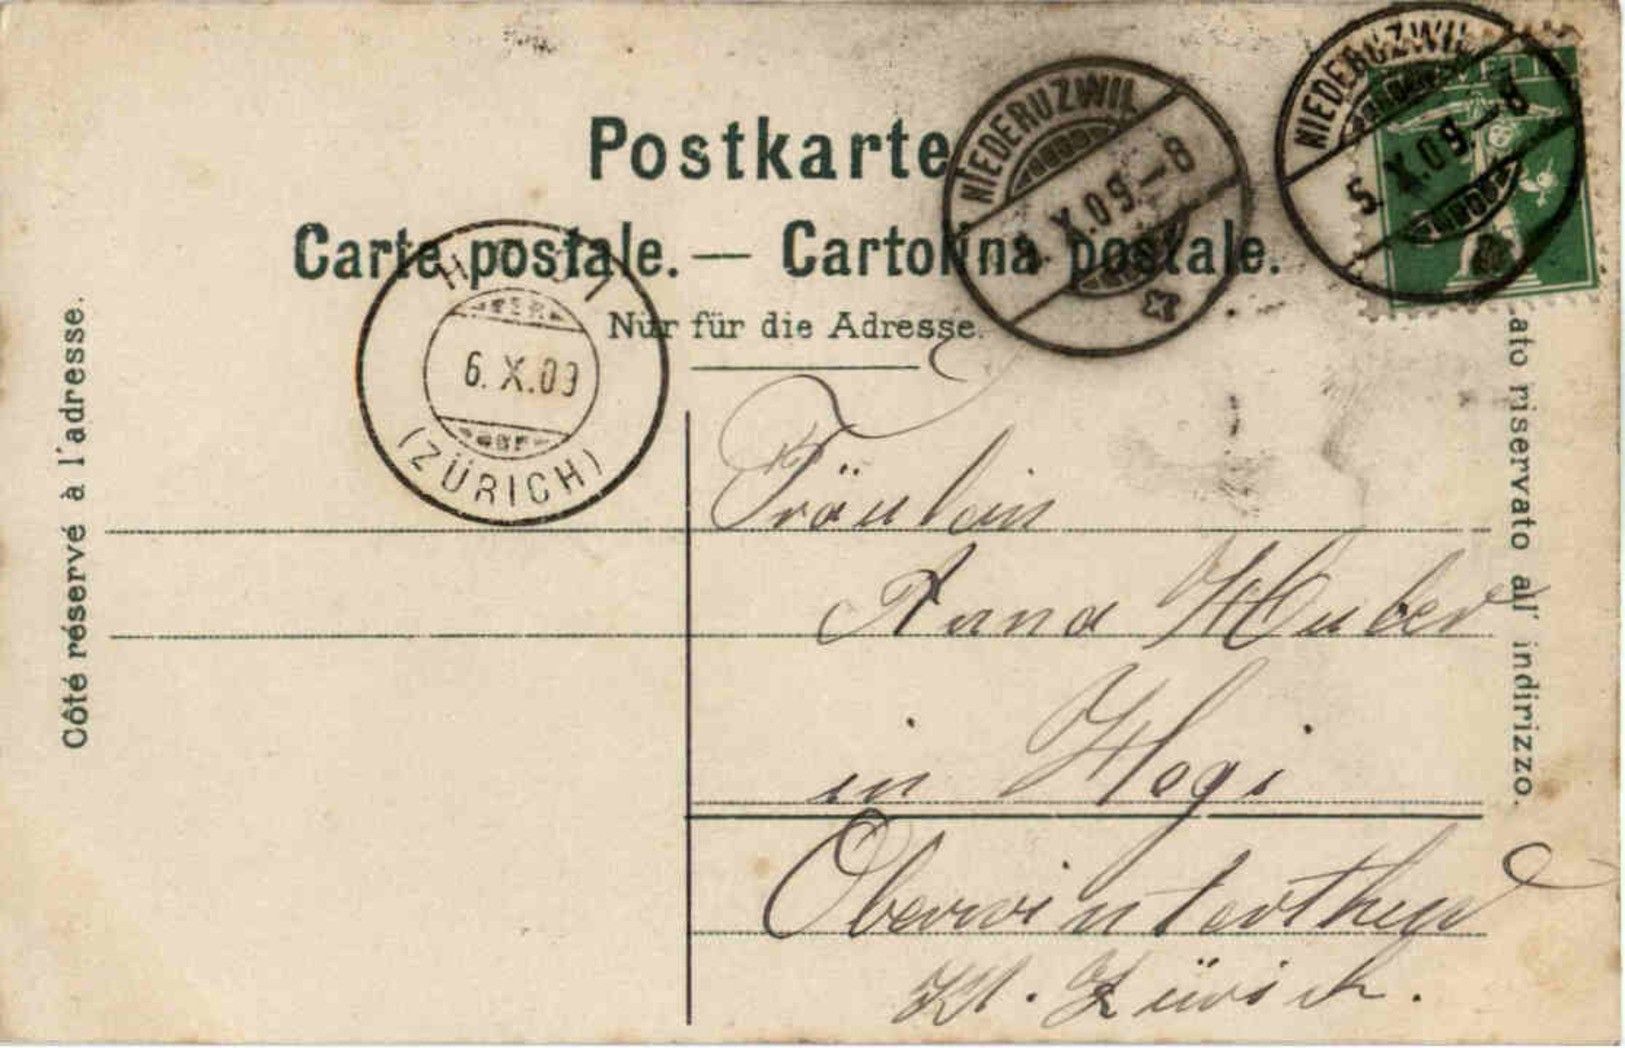 Postkarte
Carte postale. — Cartolina postale.
Nur für die Adresse.
NIEDERUZWIL
X.09.–8
NIEDERUZWIL
5. X.09.–8
6. X.09
(ZÜRICH)
Côté réservé à l'adresse.
ato riservato all' indirizzo.
Fräulein
Anna Huber
in Hegi
Oberwinterthur
Kt. Zürich.